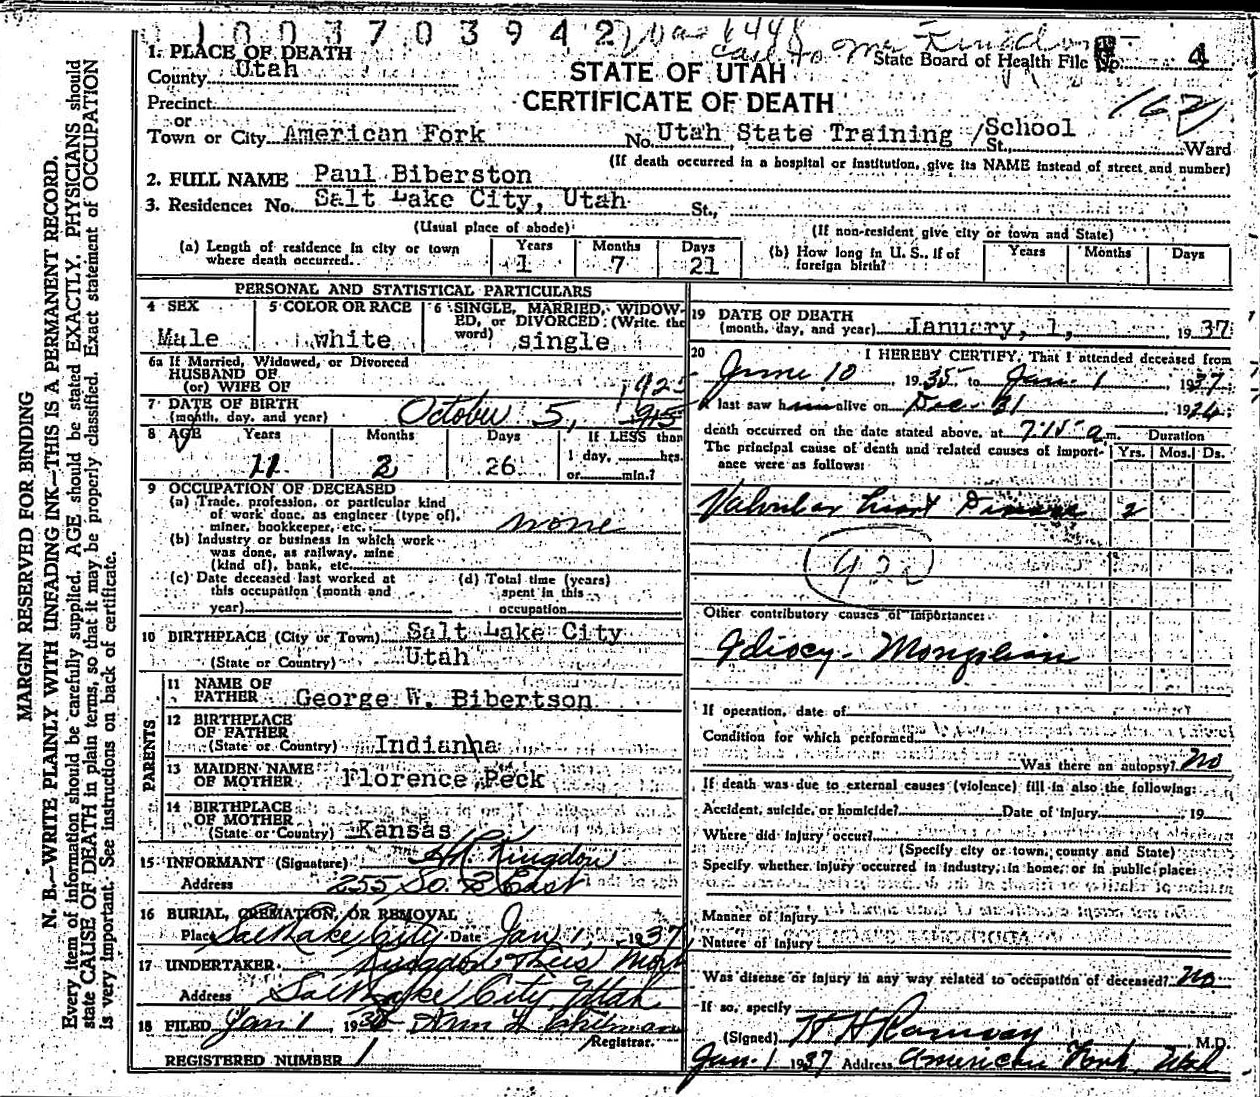 1003703942
State Board of Health File No. 4
1. PLACE OF DEATH
County Utah
STATE OF UTAH
CERTIFICATE OF DEATH
Precinct
or
Town or City American Fork No. Utah State Training / School St., Ward
(If death occurred in a hospital or institution, give its NAME instead of street and number)
2. FULL NAME Paul Biberston
3. Residence: No. Salt Lake City, Utah St.,
(Usual place of abode) (If non-resident give city or town and State)
(a) Length of residence in city or town where death occurred. Years 1 Months 7 Days 21 (b) How long in U. S., if of foreign birth? Years Months Days
PERSONAL AND STATISTICAL PARTICULARS
4 SEX Male
5 COLOR OR RACE white
6 SINGLE, MARRIED, WIDOWED, or DIVORCED (Write the word) single
6a If Married, Widowed, or Divorced
HUSBAND OF
(or) WIFE OF
7 DATE OF BIRTH
(month, day, and year) October 5, 1925 1915
8 AGE Years 11 Months 2 Days 26 If LESS than 1 day, hrs. or min.?
9 OCCUPATION OF DECEASED
(a) Trade, profession, or particular kind
of work done, as engineer (type of),
miner, bookkeeper, etc. none
(b) Industry or business in which work
was done, as railway, mine
(kind of), bank, etc.
(c) Date deceased last worked at this occupation (month and year)
(d) Total time (years) spent in this occupation
10 BIRTHPLACE (City or Town) Salt Lake City
(State or Country) Utah
PARENTS
11 NAME OF FATHER George W. Bibertson
12 BIRTHPLACE OF FATHER
(State or Country) Indianna
13 MAIDEN NAME OF MOTHER Florence Peck
14 BIRTHPLACE OF MOTHER
(State or Country) Kansas
15 INFORMANT (Signature) Kingdon
Address 255 So. 2 East
16 BURIAL, CREMATION, OR REMOVAL
Place Salt Lake City Date Jan 1, 1937
17 UNDERTAKER
Address Salt Lake City Utah
18 FILED Jan 1, 19 Registrar.
REGISTERED NUMBER 1
19 DATE OF DEATH
(month, day, and year) January, 1, 1937
20 I HEREBY CERTIFY, That I attended deceased from
June 10 1935 to Jan. 1 1937
I last saw him alive on Dec. 31 19
death occurred on the date stated above, at 7:15 a.m. Duration
The principal cause of death and related causes of importance were as follows: Yrs. Mos. Ds.
Valvular heart Disease 2
Other contributory causes of importance:
Idiocy - Mongolian
If operation, date of
Condition for which performed
Was there an autopsy? No
If death was due to external causes (violence) fill in also the following:
Accident, suicide, or homicide? Date of injury 19
Where did injury occur?
(Specify city or town, county and State)
Specify whether injury occurred in industry, in home, or in public place:
Manner of injury
Nature of injury
Was disease or injury in any way related to occupation of deceased? No
If so, specify
(Signed) H H Ramsay M.D.
Jan. 1 1937 Address American Fork, Utah
MARGIN RESERVED FOR BINDING
N. B.—WRITE PLAINLY WITH UNFADING INK—THIS IS A PERMANENT RECORD.
Every item of information should be carefully supplied. AGE should be stated EXACTLY. PHYSICIANS should
state CAUSE OF DEATH in plain terms, so that it may be properly classified. Exact statement of OCCUPATION
is very important. See instructions on back of certificate.